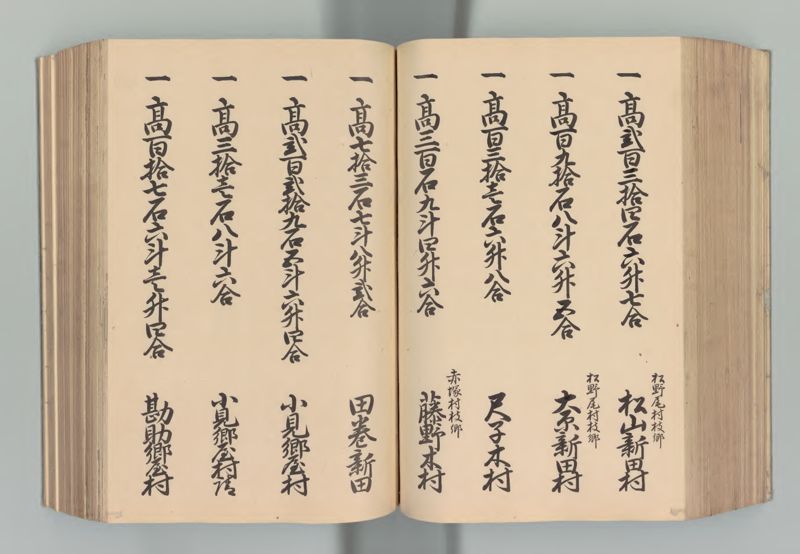 一 高弐百三拾四石六升七合 松野尾村枝郷 松山新田村
一 高百九拾石八斗六升五合 松野尾村枝郷 新田村
一 高百三拾壱石六升八合 尺子木村
一 高三百石九斗四升六合 赤塚村枝郷 藤野木村
一 高七拾三石七斗八升弐合 田巻新田
一 高弐百弐拾九石五斗六升四合 小見郷屋村
一 高三拾壱石八斗六合 小見郷屋村
一 高百拾七石六斗壱升四合 勘助郷屋村